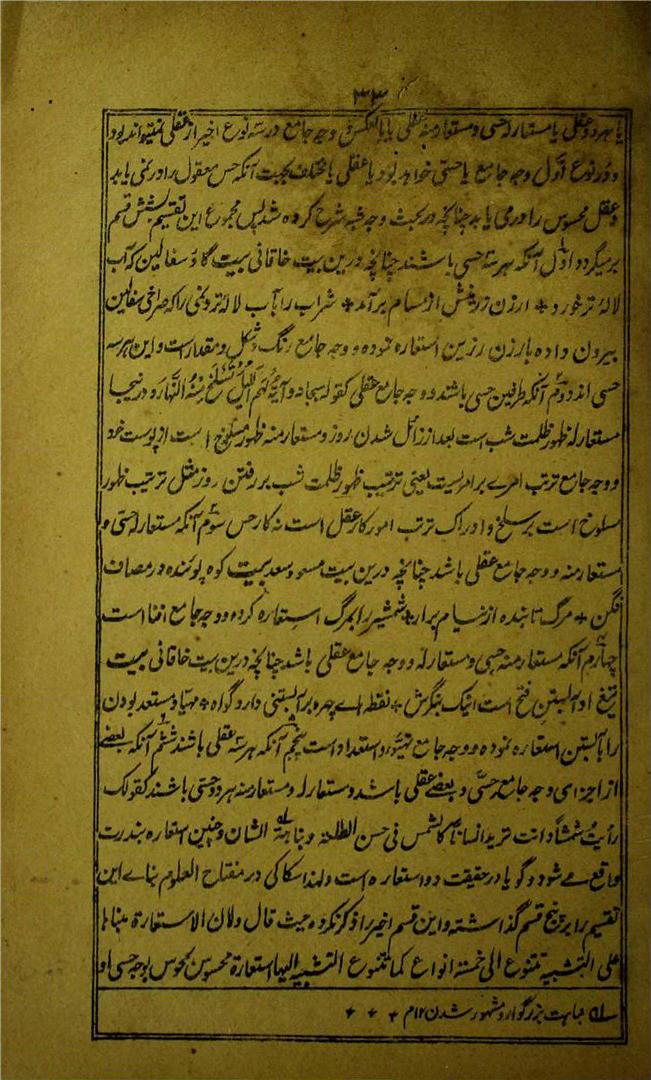 ۳۳
یا هر دو عقلی یا مستعار له حسی و مستعار منه عقلی یا بالعکس و وجه جامع در سه نوع اخیر از عقلی نمیتواند بود
و در نوع اول وجه جامع یا حسی خواهد بود یا عقلی یا مختلف بجهت آنکه حس معقول را در نمی یابد
و عقل محسوس را در می یابد چنانچه در بحث وجه شبه شرح کرده شد پس مجموع این تقسیم بشش قسم
برمیگردد اول آنکه هر سه حسی باشند چنانچه درین بیت خاقانی بیت گاو سفالین که آب
لاله تر خورد + ارزن زرینش از مسام برآمد + شراب را بآب لاله تر و نمی را که صراحی سفالین
بیرون داده بارزن زرین استعاره نموده و وجه جامع رنگ و شکل و مقدار است و این هر سه
حسی اند دوم آنکه طرفین حسی باشند و وجه جامع عقلی کقوله سبحانه و آیة لهم اللیل نسلخ منه النهار و درینجا
مستعار له ظهور ظلمت شب است بعد از زائل شدن روز و مستعار منه ظهور مسلوخ است از پوست خود
و وجه جامع ترتب امرے بر امریست یعنی ترتب ظهور ظلمت شب بر رفتن روز مثل ترتب ظهور
مسلوخ است بر سلخ و ادراک ترتب امور کار عقل است نه کار حس سوم آنکه مستعار له حسی و
مستعار منه و وجه جامع عقلی باشد چنانچه درین بیت مسعود سعد بیت کوه پوینده در مصاف
فگن + مرگ تابنده از نیام برار + شمشیر را بمرگ استعاره کرده و وجه جامع افنا است
چهارم آنکه مستعار منه حسی و مستعار له و وجه جامع عقلی باشد چنانچه درین بیت خاقانی بیت
تیغ او آبستن فتح است اینک بنگرش + نقطه اے چهره بر آبستنی دارد گواه + مهیا و مستعد بودن
را بآبستن استعاره نموده و وجه جامع تهیؤ و استعداد است پنجم آنکه هر سه عقلی باشند ششم آنکه بعضے
از اجزای وجه جامع حسی و بعضے عقلی باشد و مستعار له و مستعار منه هر دو حسی باشند کقولک
رأیت شمسًا و انت ترید انسانا کالشمس فی حسن الطلعة و نباهة الشان و چنین استعاره بندرت
واقع مے شود و گویا در حقیقت دو استعاره است و لهذا سکاکی در مفتاح العلوم بناے این
تقسیم را بر پنج قسم گذاشته و این قسم اخیر را ذکر نکرده حیث قال و لان الاستعارة مبناها
علی التشبیه تتنوع الی خمسة انواع کما تتنوع التشبیه الیها استعارة محسوس لمحسوس بوجه حسی او
له نباهت بزرگوار و مشهور شدن ۱۲ م + + +